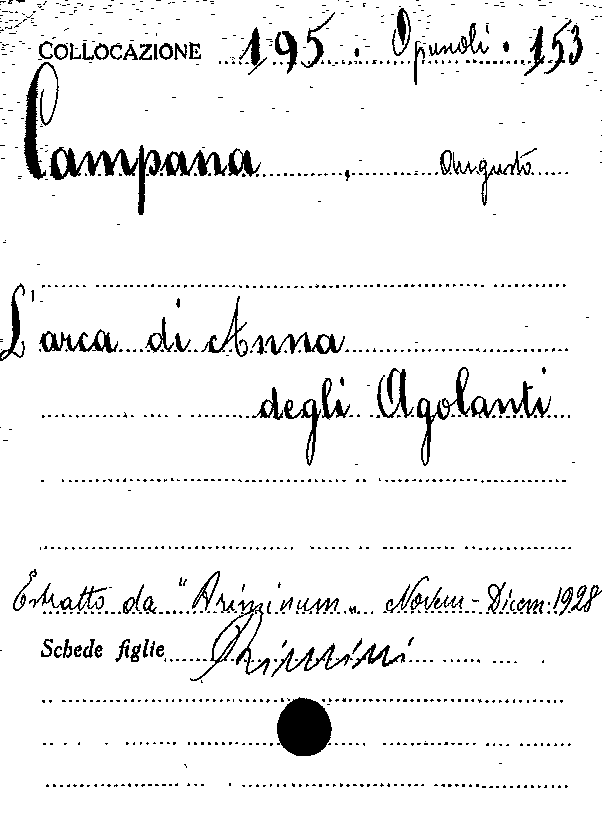 COLLOCAZIONE 195. Opuscoli. 153
Campana, Augusto
L'arca di Anna
degli Agolanti
Estratto da "Ariminum„ Novem-Dicem. 1928
Schede figlie Rimini